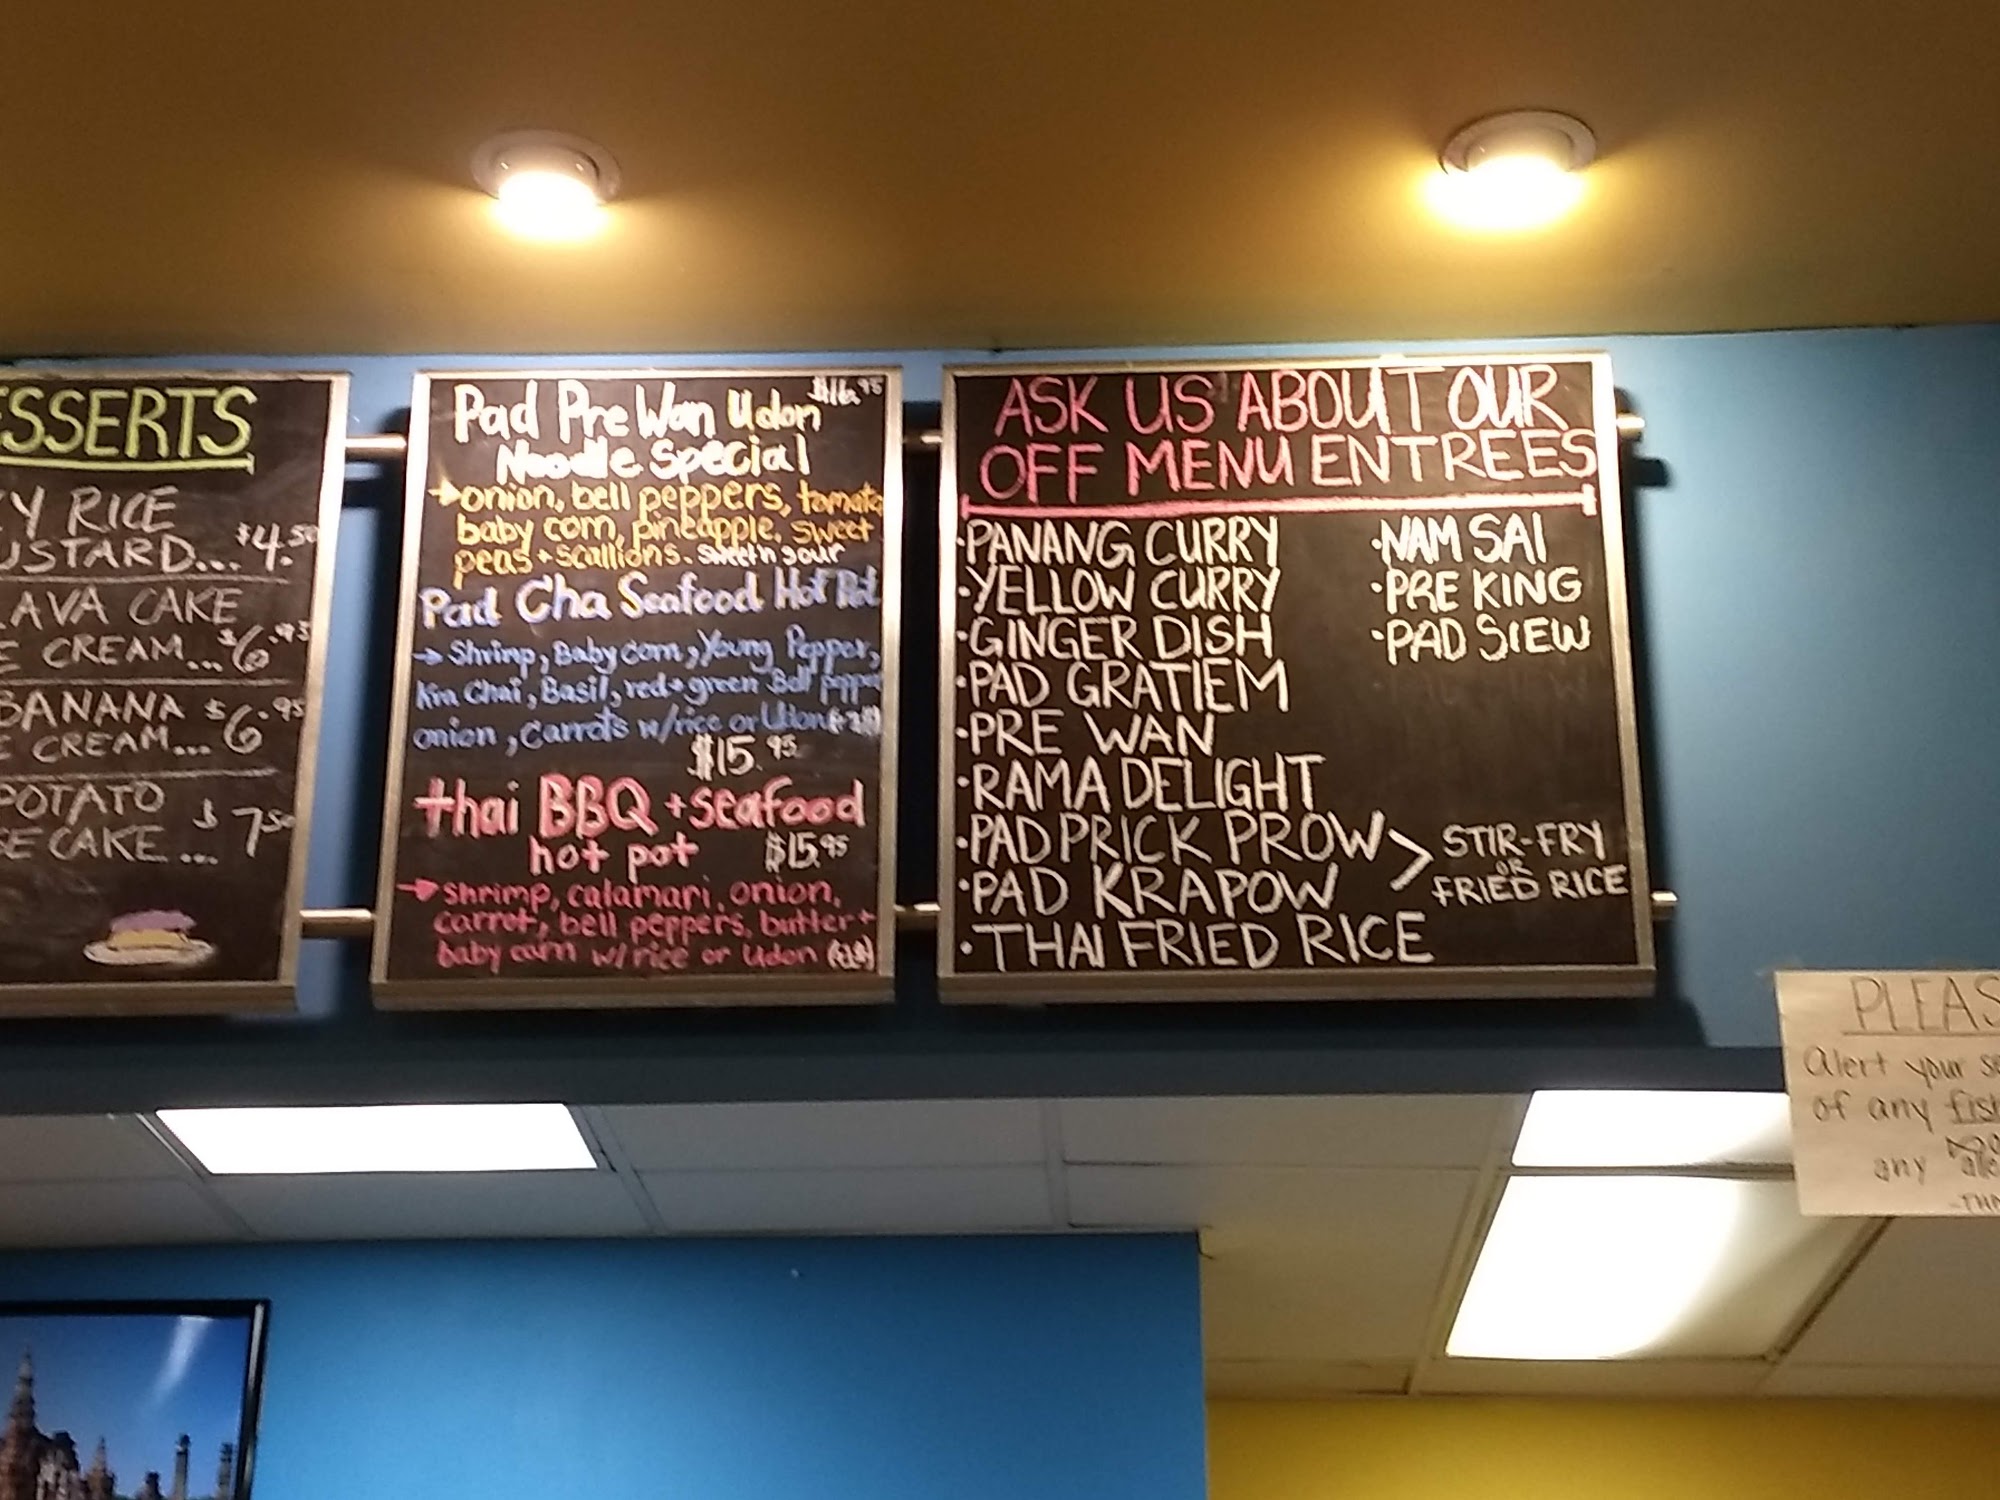 ESSERTS
Y RICE
USTARD... $4.50
LAVA CAKE
E CREAM... $6.95
BANANA $6.95
E CREAM...
POTATO $7.50
SE CAKE...
Pad Pre Wan Udon $16.95
Noodle Special
→onion, bell peppers, tomato
baby corn, pineapple, sweet
peas + scallions. sweet n sour
Pad Cha Seafood Hot Pot
→ Shrimp, Baby corn, Young Pepper,
Kra Chai, Basil, red + green Bell pepper
onion, carrots w/rice or Udon
$15.95
thai BBQ + seafood
hot pot $15.95
→ shrimp, calamari, onion,
carrot, bell peppers, butter +
baby corn w/rice or udon
ASK US ABOUT OUR
OFF MENU ENTREES
·PANANG CURRY
·YELLOW CURRY
·GINGER DISH
·PAD GRATIEM
·PRE WAN
·RAMA DELIGHT
·PAD PRICK PROW
·PAD KRAPOW
> STIR-FRY
OR
FRIED RICE
·THAI FRIED RICE
·NAM SAI
·PRE KING
·PAD SIEW
PLEAS
alert your se
of any fish
any alle
-THA